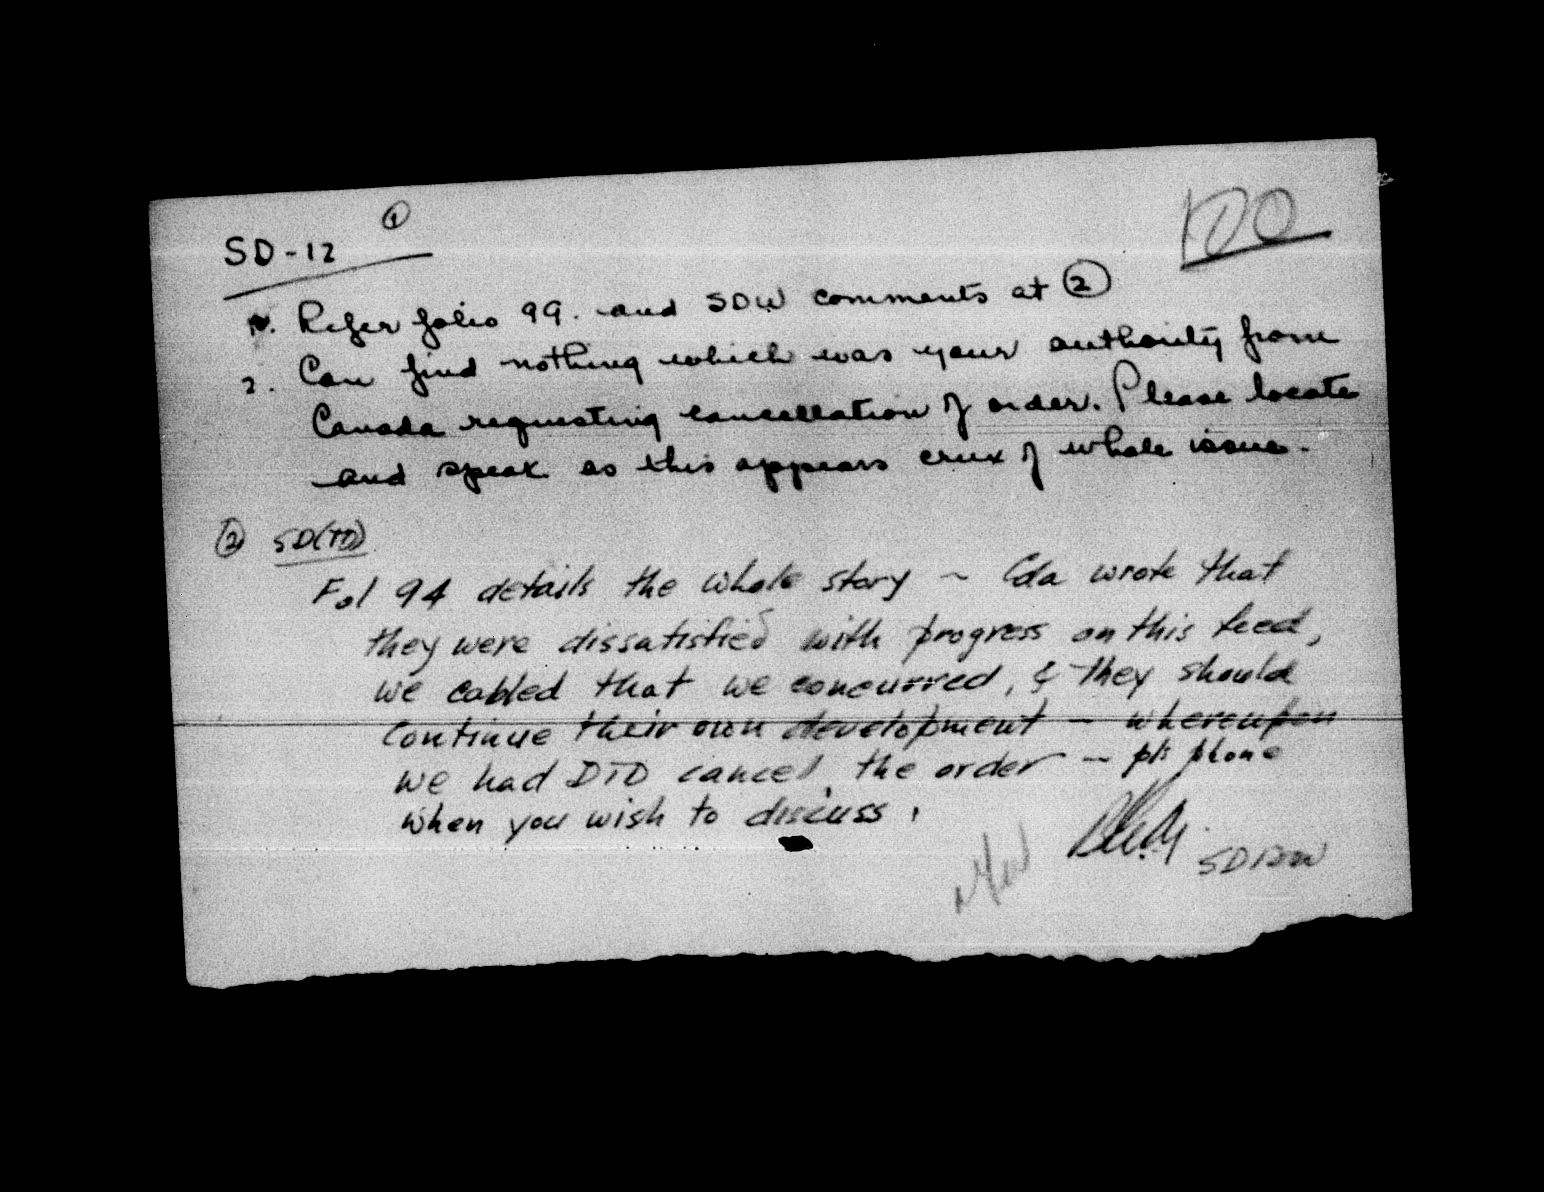 ①
SD-12
100
1. Refer folio 99. and SDW comments at ②
2. Can find nothing which was your authority from
Canada requesting cancellation of order. Please locate
and speak as this appears crux of whole issue.
② SD(TD)
Fol 94 details the whole story ~ Cda wrote that
they were dissatisfied with progress on this feed,
we cabled that we concurred, & they should
continue their own development - whereupon
we had DTD cancel the order -- pls phone
when you wish to discuss.